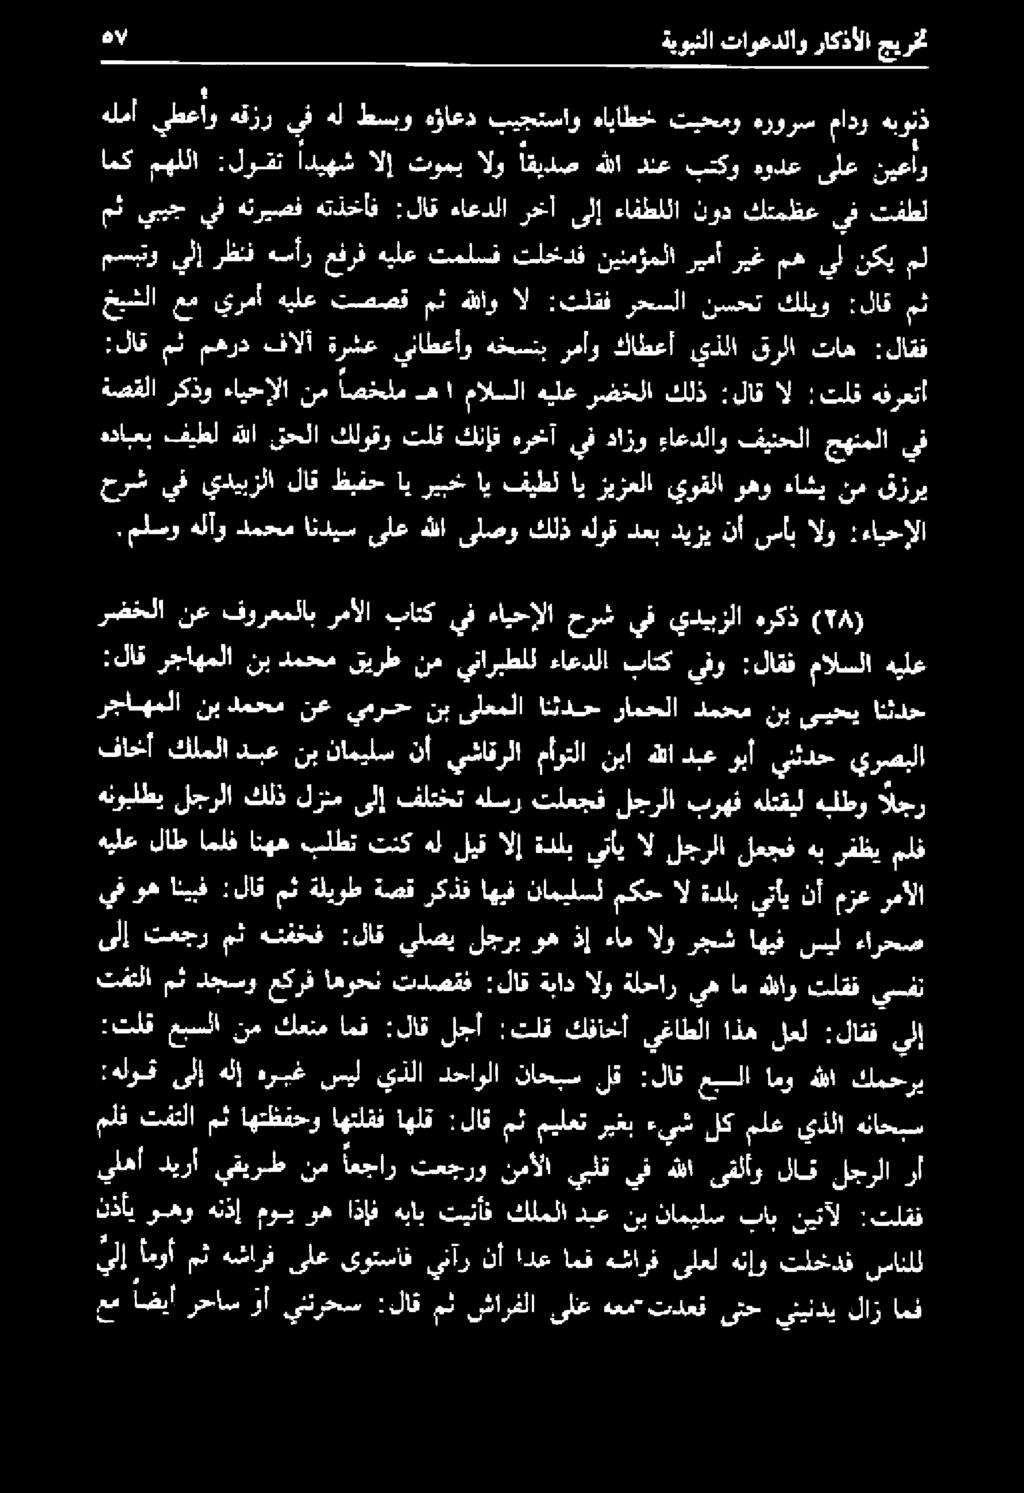 تخريج الأذكار والدعوات النبوية ٥٧
ذنوبه ودام سروره ومحيت خطاياه واستجيب دعاؤه وبسط له في رزقه وأُعطي أمله
وأُعين على عدوه وكتب عند الله صديقاً ولا يموت إلا شهيداً تقول: اللهم كما
لطفت في عظمتك دون اللطفاء إلى آخر الدعاء، قال: فأخذته فصيرته في جيبي ثم
لم يكن لي هم غير أمير المؤمنين فدخلت فسلمت عليه فرفع رأسه فنظر إلي وتبسم
ثم قال: ويلك تحسن السحر فقلت: لا والله ثم قصصت عليه أمري مع الشيخ
فقال: هات الرق الذي أعطاك وأمر بنسخه وأعطاني عشرة آلاف درهم ثم قال:
أتعرفه قلت: لا قال: ذلك الخضر عليه السلام اهـ ملخصاً من الإحياء وذكر القصة
في المنهج الحنيف والدعاء وزاد في آخره فإنك قلت وقولك الحق الله لطيف بعباده
يرزق من يشاء وهو القوي العزيز يا لطيف يا خبير يا حفيظ قال الزبيدي في شرح
الإحياء: ولا بأس أن يزيد بعد قوله ذلك وصلى الله على سيدنا محمد وآله وسلم.
(٢٨) ذكره الزبيدي في شرح الإحياء في كتاب الأمر بالمعروف عن الخضر
عليه السلام فقال: وفي كتاب الدعاء للطبراني من طريق محمد بن المهاجر قال:
حدثنا يحيى بن محمد الحمار حدثنا المعلى بن حرمي عن محمد بن المهاجر
البصري حدثني أبو عبد الله ابن التوأم الرقاشي أن سليمان بن عبد الملك أخاف
رجلاً وطلبه ليقتله فهرب الرجل فجعلت رسله تختلف إلى منزل ذلك الرجل يطلبونه
فلم يظفر به فجعل الرجل لا يأتي بلدة إلا قيل له كنت تطلب ههنا فلما طال عليه
الأمر عزم أن يأتي بلدة لا حكم لسليمان فيها فذكر قصة طويلة ثم قال: فبينا هو في
صحراء ليس فيها شجر ولا ماء إذ هو برجل يصلي قال: فخفته ثم رجعت إلى
نفسي فقلت والله ما هي راحلة ولا دابة قال: فقصدت نحوها فركع وسجد ثم التفت
إلي فقال: لعل هذا الطاغي أخافك قلت: أجل قال: فما منعك من السبع قلت:
يرحمك الله وما السبع قال: قل سبحان الواحد الذي ليس غيره إله إلى قوله:
سبحانه الذي علم كل شيء بغير تعليم ثم قال: قلها فقلتها وحفظتها ثم التفت فلم
أر الرجل قال وألقى الله في قلبي الأمن ورجعت راجعاً من طريقي أريد أهلي
فقلت: لآتين باب سليمان بن عبد الملك فأتيت بابه فإذا هو يوم إذنه وهو يأذن
للناس فدخلت وإنه لعلى فراشه فما عدا أن رآني فاستوى على فراشه ثم أومأ إليَّ
فما زال يدنيني حتى قعدت معه على الفراش ثم قال: سحرتني أوَ ساحر أيضاً مع